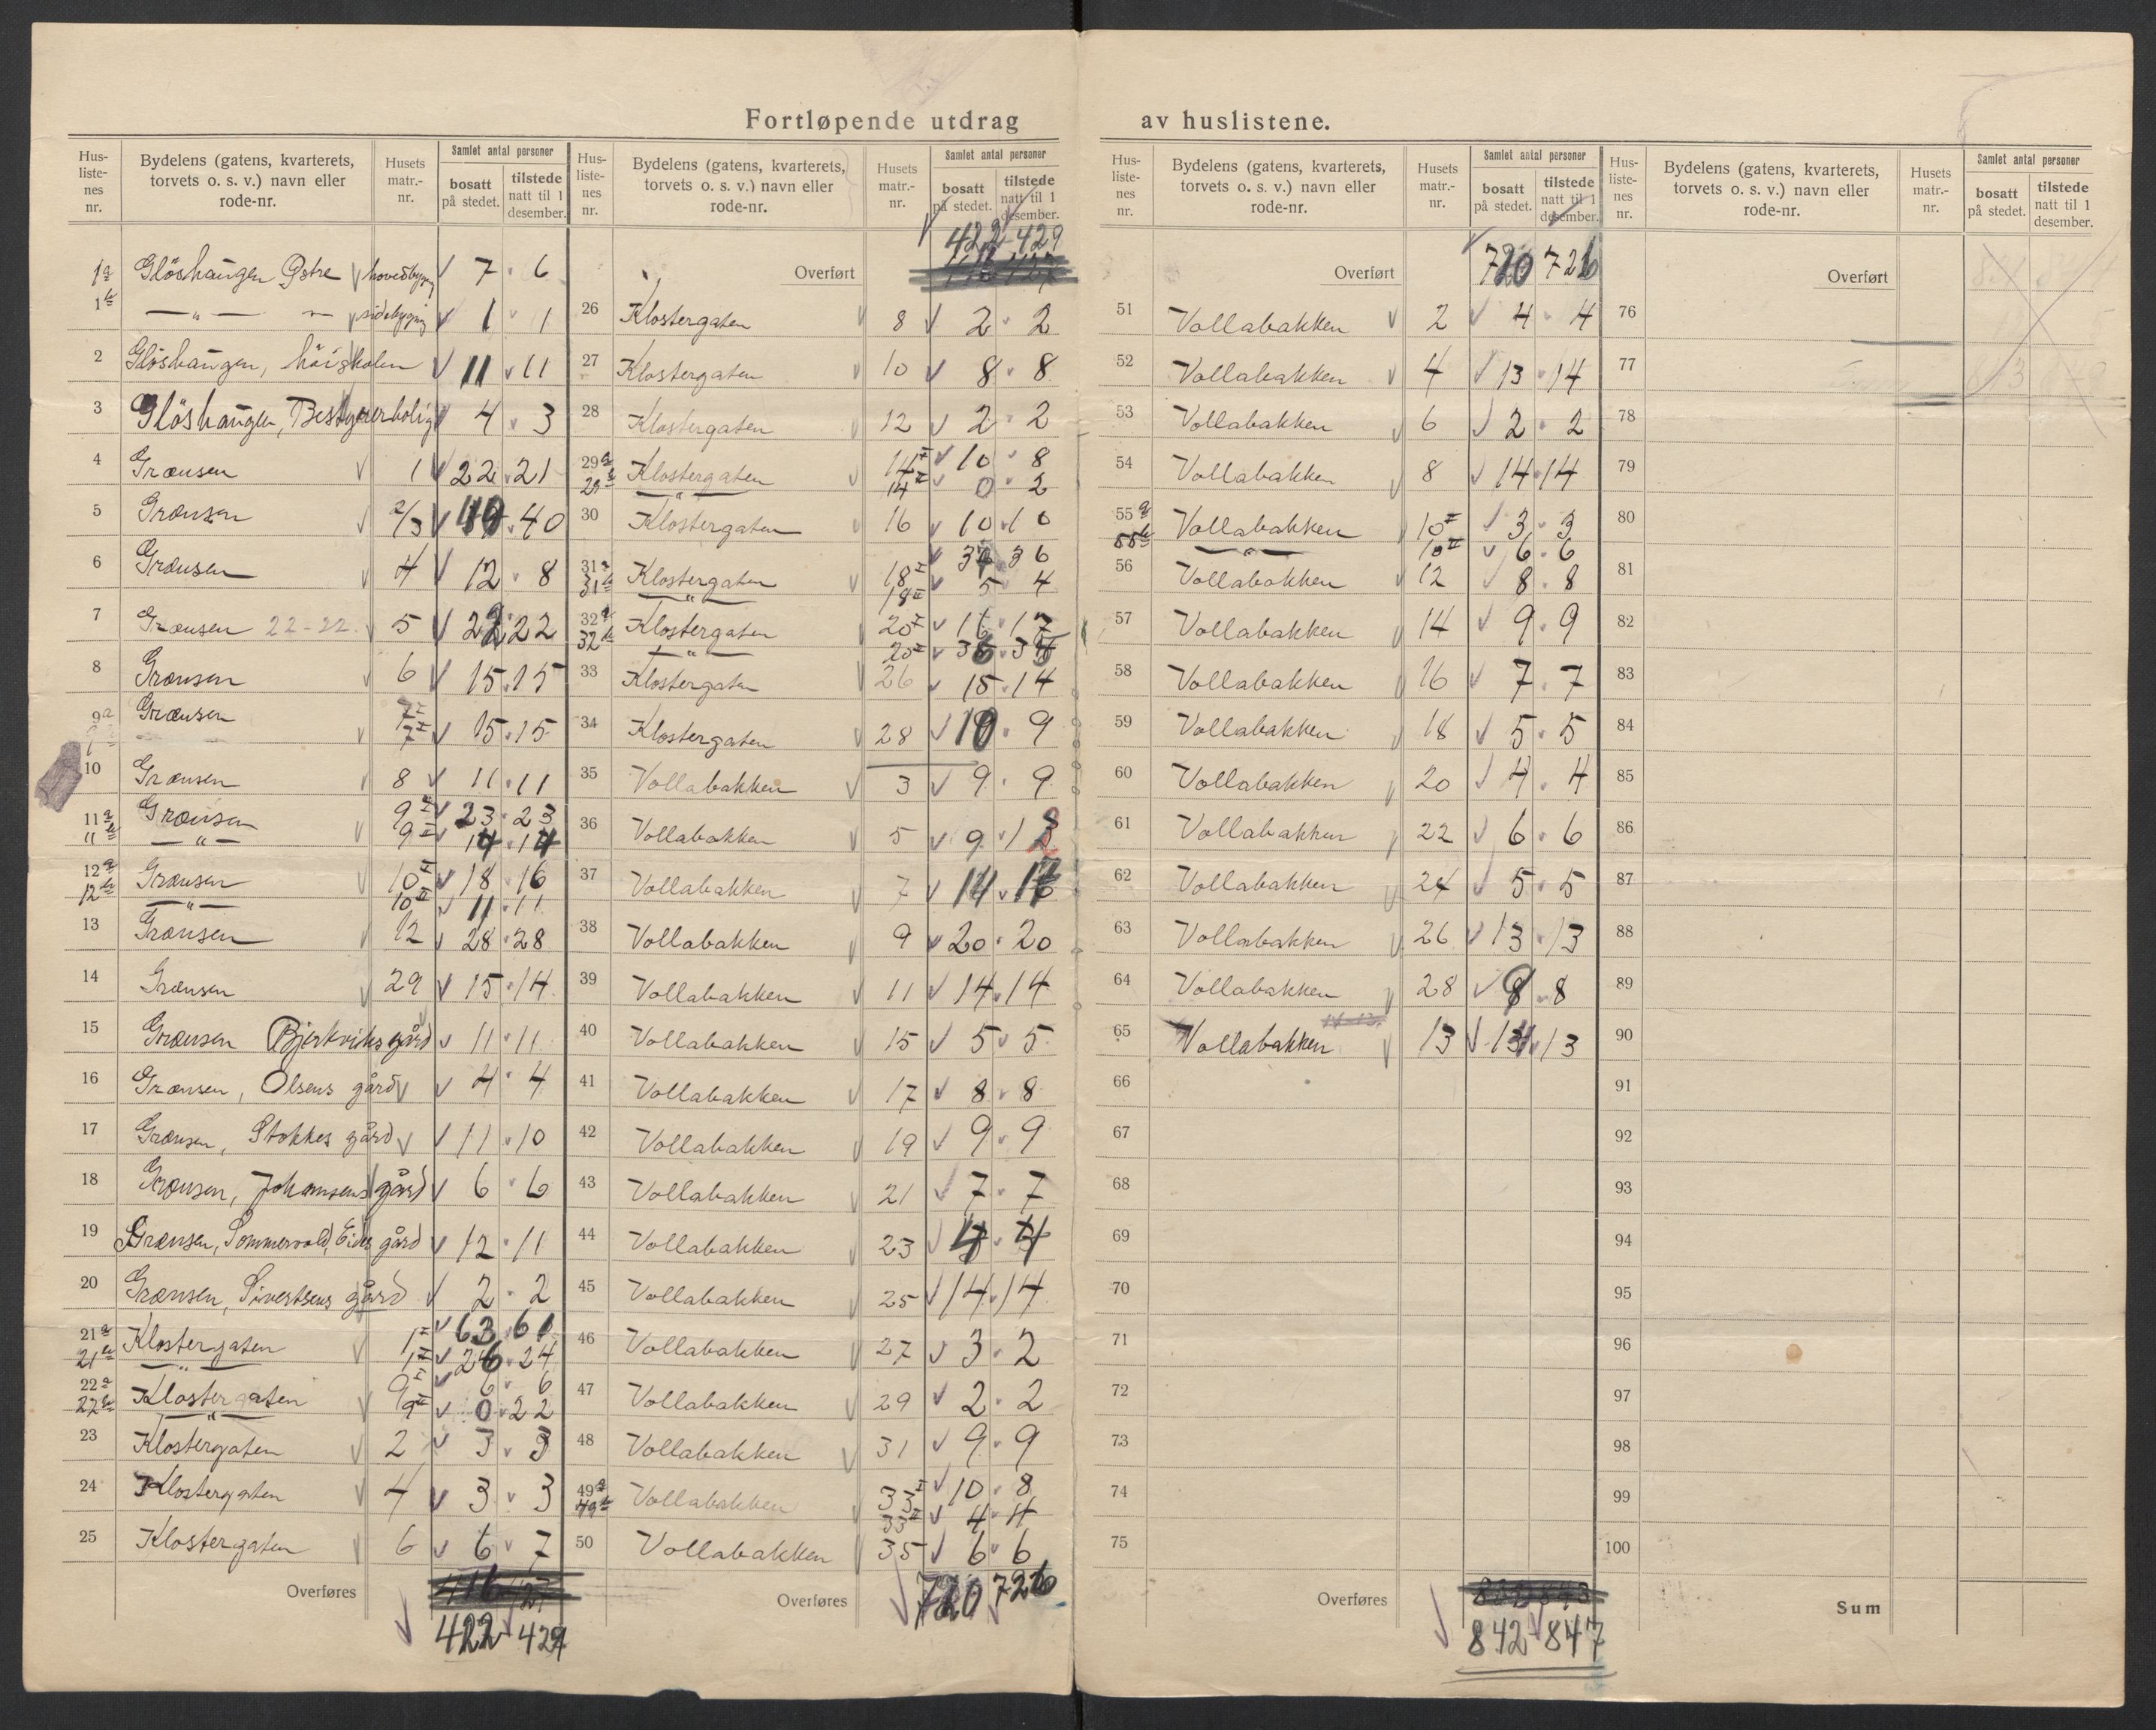 Fortløpende utdrag av huslistene.
Hus-liste-nes nr. Bydelens (gatens, kvarterets, torvets o. s. v.) navn eller rode-nr. Husets matr.-nr. Samlet antal personer bosatt på stedet. tilstede natt til 1 desember.
1a Glöshaugen Østre hovedbygn 7 6
1b — " — — sidebygnig 1 1
2 Glöshaugen, höiskolen 11 11
3 Glöshaugen, Bestyrerbolig 4 3
4 Grænsen 1 22 21
5 Grænsen 2/3 40
6 Grænsen 4 12 8
7 Grænsen 22-22 5 22 22
8 Grænsen 6 15 15
9a Grænsen 7I
7II 15 15
10 Grænsen 8 11 11
11a Grænsen 9I 23 23
11b — " — 9II 14 14
12a Grænsen 10I 18 16
12b — " — 10II 11 11
13 Grænsen 12 28 28
14 Grænsen 29 15 14
15 Grænsen Bjerkviks gård 11 11
16 Grænsen, Olsens gård 4 4
17 Grænsen, Stokkes gård 11 10
18 Grænsen, Johansens gård 6 6
19 Grænsen, Sommervold, Eides gård 12 11
20 Grænsen, Sivertsens gård 2 2
21a Klostergaten 1I 63 61
21b — " — 1II 26 24
22a Klostergaten 9I 6 6
22b — " — 9II 0 22
23 Klostergaten 2 3 3
24 Klostergaten 4 3 3
25 Klostergaten 6 6 7
Overføres
422 429
Hus-liste-nes nr. Bydelens (gatens, kvarterets, torvets o. s. v.) navn eller rode-nr. Husets matr.-nr. Samlet antal personer bosatt på stedet. tilstede natt til 1 desember.
422 429
Overført
26 Klostergaten 8 2 2
27 Klostergaten 10 8 8
28 Klostergaten 12 2 2
29a Klostergaten 14I 10 8
29b — " — 14II 0 2
30 Klostergaten 16 10 10
31a Klostergaten 18I 37 36
31b — " — 18II 5 4
32a Klostergaten 20I 16 17
32b — " — 20II 36
33 Klostergaten 26 15 14
34 Klostergaten 28 10 9
35 Vollabakken 3 9 9
36 Vollabakken 5 9
37 Vollabakken 7 14
38 Vollabakken 9 20 20
39 Vollabakken 11 14 14
40 Vollabakken 15 5 5
41 Vollabakken 17 8 8
42 Vollabakken 19 9 9
43 Vollabakken 21 7 7
44 Vollabakken 23 4 4
45 Vollabakken 25 14 14
46 Vollabakken 27 3 2
47 Vollabakken 29 2 2
48 Vollabakken 31 9 9
49a Vollabakken 33I 10 8
49b 33II 4 4
50 Vollabakken 35 6 6
Overføres 720 726
Hus-liste-nes nr. Bydelens (gatens, kvarterets, torvets o. s. v.) navn eller rode-nr. Husets matr.-nr. Samlet antal personer bosatt på stedet. tilstede natt til 1 desember.
Overført 720 726
51 Vollabakken 2 4 4
52 Vollabakken 4 13 14
53 Vollabakken 6 2 2
54 Vollabakken 8 14 14
55a Vollabakken 10I 3 3
55b — " — 10II 6 6
56 Vollabakken 12 8 8
57 Vollabakken 14 9 9
58 Vollabakken 16 7 7
59 Vollabakken 18 5 5
60 Vollabakken 20 4 4
61 Vollabakken 22 6 6
62 Vollabakken 24 5 5
63 Vollabakken 26 13 13
64 Vollabakken 28 8
65 Vollabakken 13 13
66
67
68
69
70
71
72
73
74
75
Overføres
842 847
Hus-liste-nes nr. Bydelens (gatens, kvarterets, torvets o. s. v.) navn eller rode-nr. Husets matr.-nr. Samlet antal personer bosatt på stedet. tilstede natt til 1 desember.
Overført
76
77
78
79
80
81
82
83
84
85
86
87
88
89
90
91
92
93
94
95
96
97
98
99
100
Sum